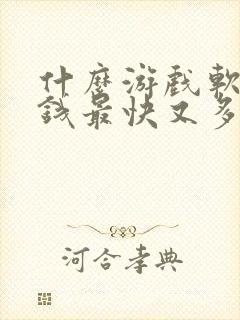 什麼游戲軟
錢最快又多
河合孝典